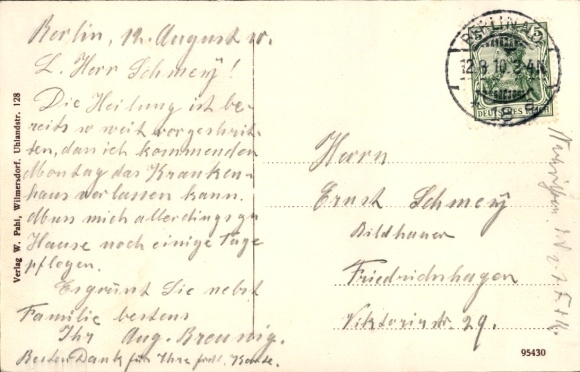 Berlin, 12. August 10.
L. Herr Schmerj!
Die Heilung ist be-
reits so weit vorgeschrit-
ten, dass ich kommenden
Montag das Kranken-
haus verlassen kann.
Muss mich allerdings zu
Hause noch einige Tage
pflegen.
Es grüsst Sie nebst
Familie bestens
Ihr Aug. Breuwig.
Besten Dank für Ihre frdl. Karte.
Verlag W. Pahl, Wilmersdorf. Uhlandstr. 128
BERLIN
12.8.10.
DEUTSCHES REICH
Herrn
Ernst Schmerj
Bildhauer
Friedrichshagen
Viktoriastr. 29.
95430